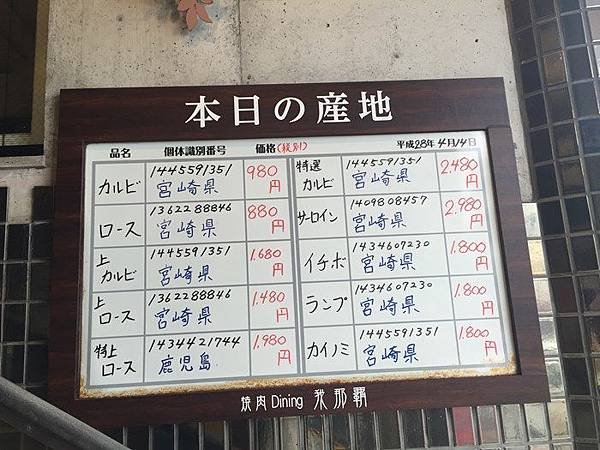 本日の産地
品名 個体識別番号 価格(税別) 平成28年4月14日
カルビ 1445591351 宮崎県 980円
ロース 1362288846 宮崎県 880円
上カルビ 1445591351 宮崎県 1,680円
上ロース 1362288846 宮崎県 1,480円
特上ロース 1434421744 鹿児島 1,980円
特選カルビ 1445591351 宮崎県 2,480円
サーロイン 1409808457 宮崎県 2,980円
イチボ 1434607230 宮崎県 1,800円
ランプ 1434607230 宮崎県 1,800円
カイノミ 1445591351 宮崎県 1,800円
焼肉Dining 我那覇